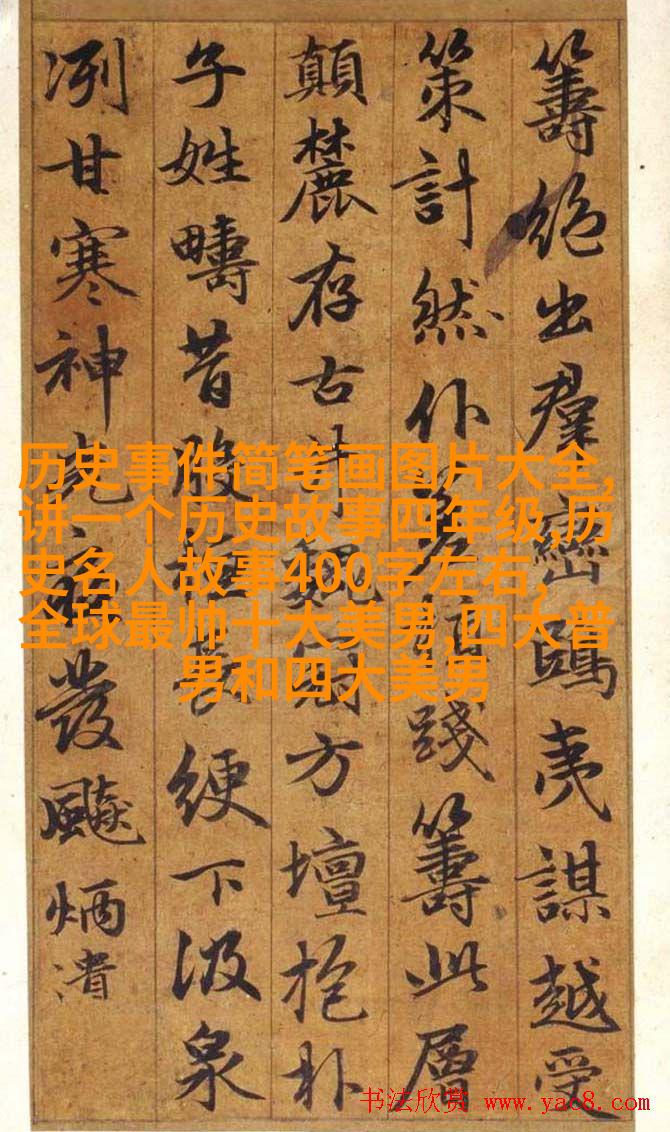 籌絕出羣巒鴟夷謀越受
策計然仆踐籌此層
顛麓存古井方壇抱朴
子姓疇昔綆下汲泉
冽甘寒神發飈炳漬
历史事件简笔画图片大全,
讲一个历史故事四年级,历
史名人故事400字左右,
全球最帅十大美男,四大普
男和四大美男
书法欣赏 www.yac8.com